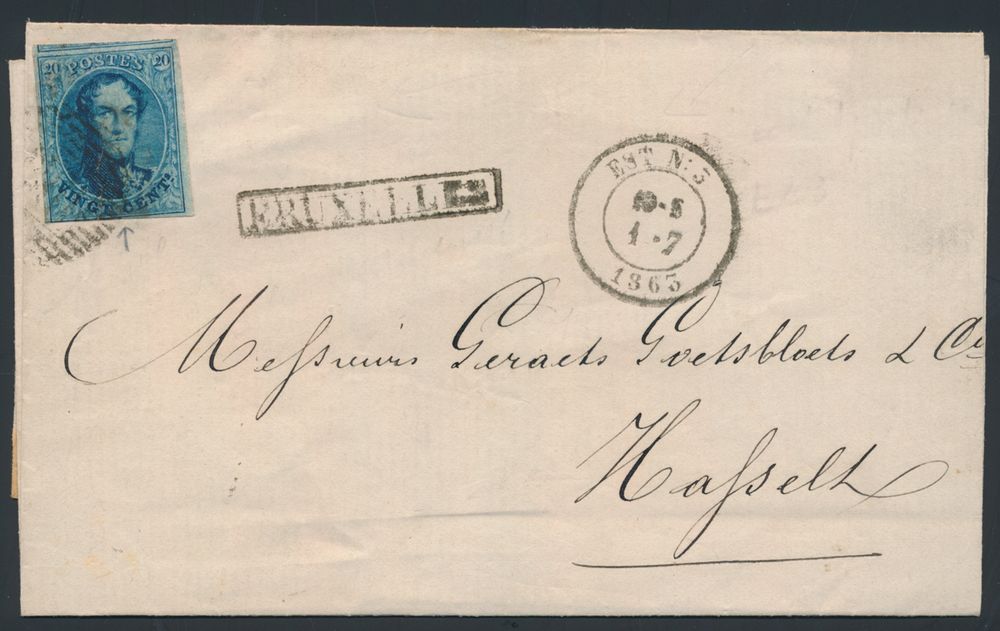 20 POSTES 20
VINGT CENTS.
BRUXELLES
EST N. 3
1 · 7
1863
Messieurs Geraets Goetsbloets & Cie
Hasselt